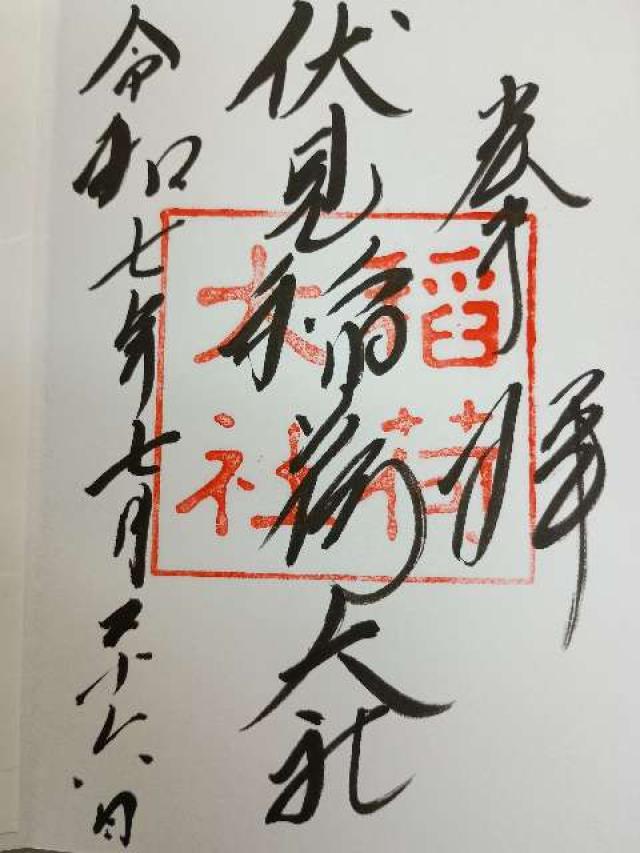 奉拝
伏見稲荷大社
令和七年七月二十六日
稻荷
大社